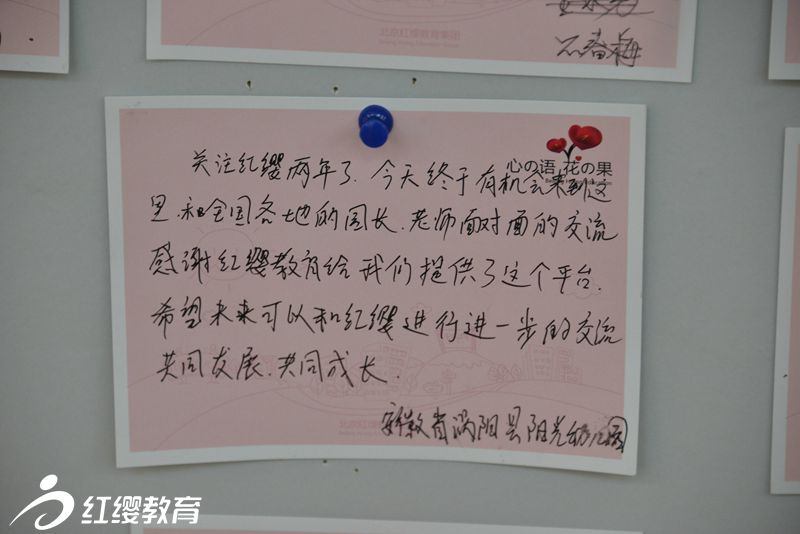 北京红缨教育集团
石春梅
心の语 花の果
关注红缨两年了.今天终于有机会来到这
里.和全国各地的园长.老师面对面的交流
感谢红缨教育给我们提供了这个平台.
希望未来可以和红缨进行进一步的交流
共同发展.共同成长.
安徽省涡阳县阳光幼儿园
北京红缨
红缨教育